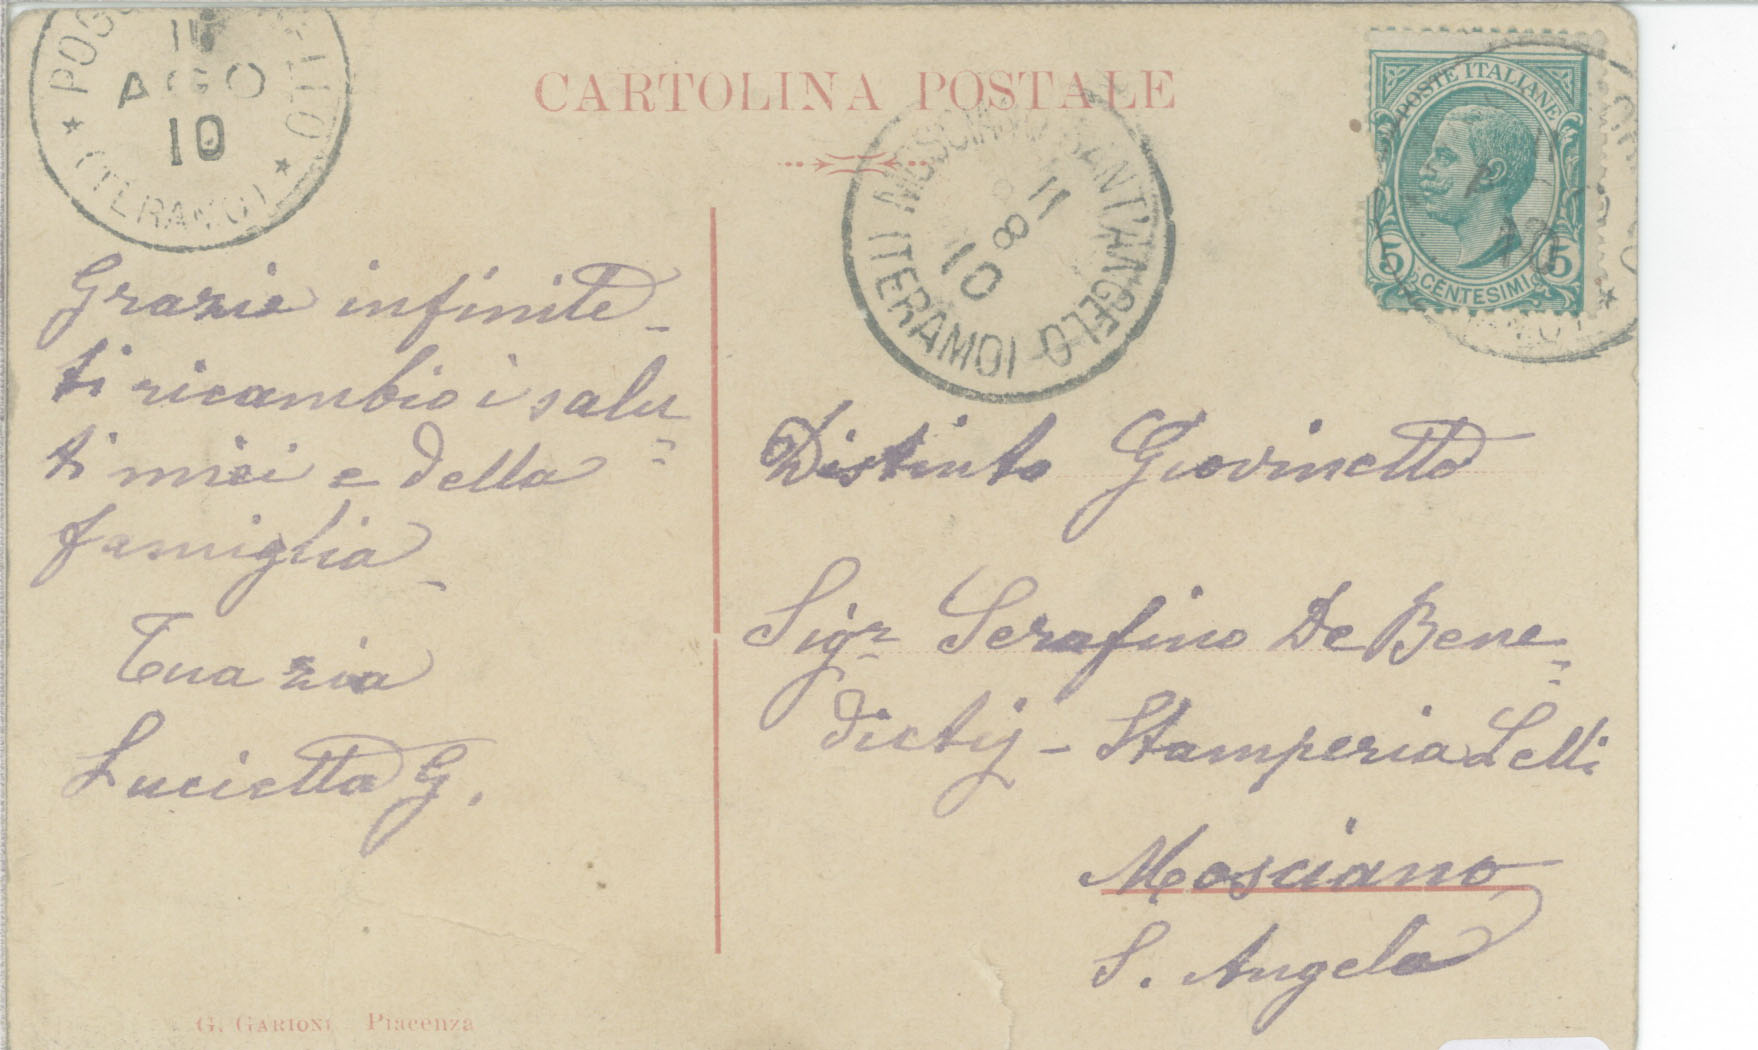 CARTOLINA POSTALE
AGO
10
(TERAMO)
MOSCIANO SANT'ANGELO
11
8
10
(TERAMO)
POSTE ITALIANE
5 CENTESIMI 5
Grazie infinite _
ti ricambio i salu=
ti miei e della
famiglia _
Tua zia
Lucietta G.
Distinto Giovinetto
Sigr Serafino De Bene=
dictij - Stamperia Lelli
Mosciano
S. Angelo
G. GARIONI Piacenza